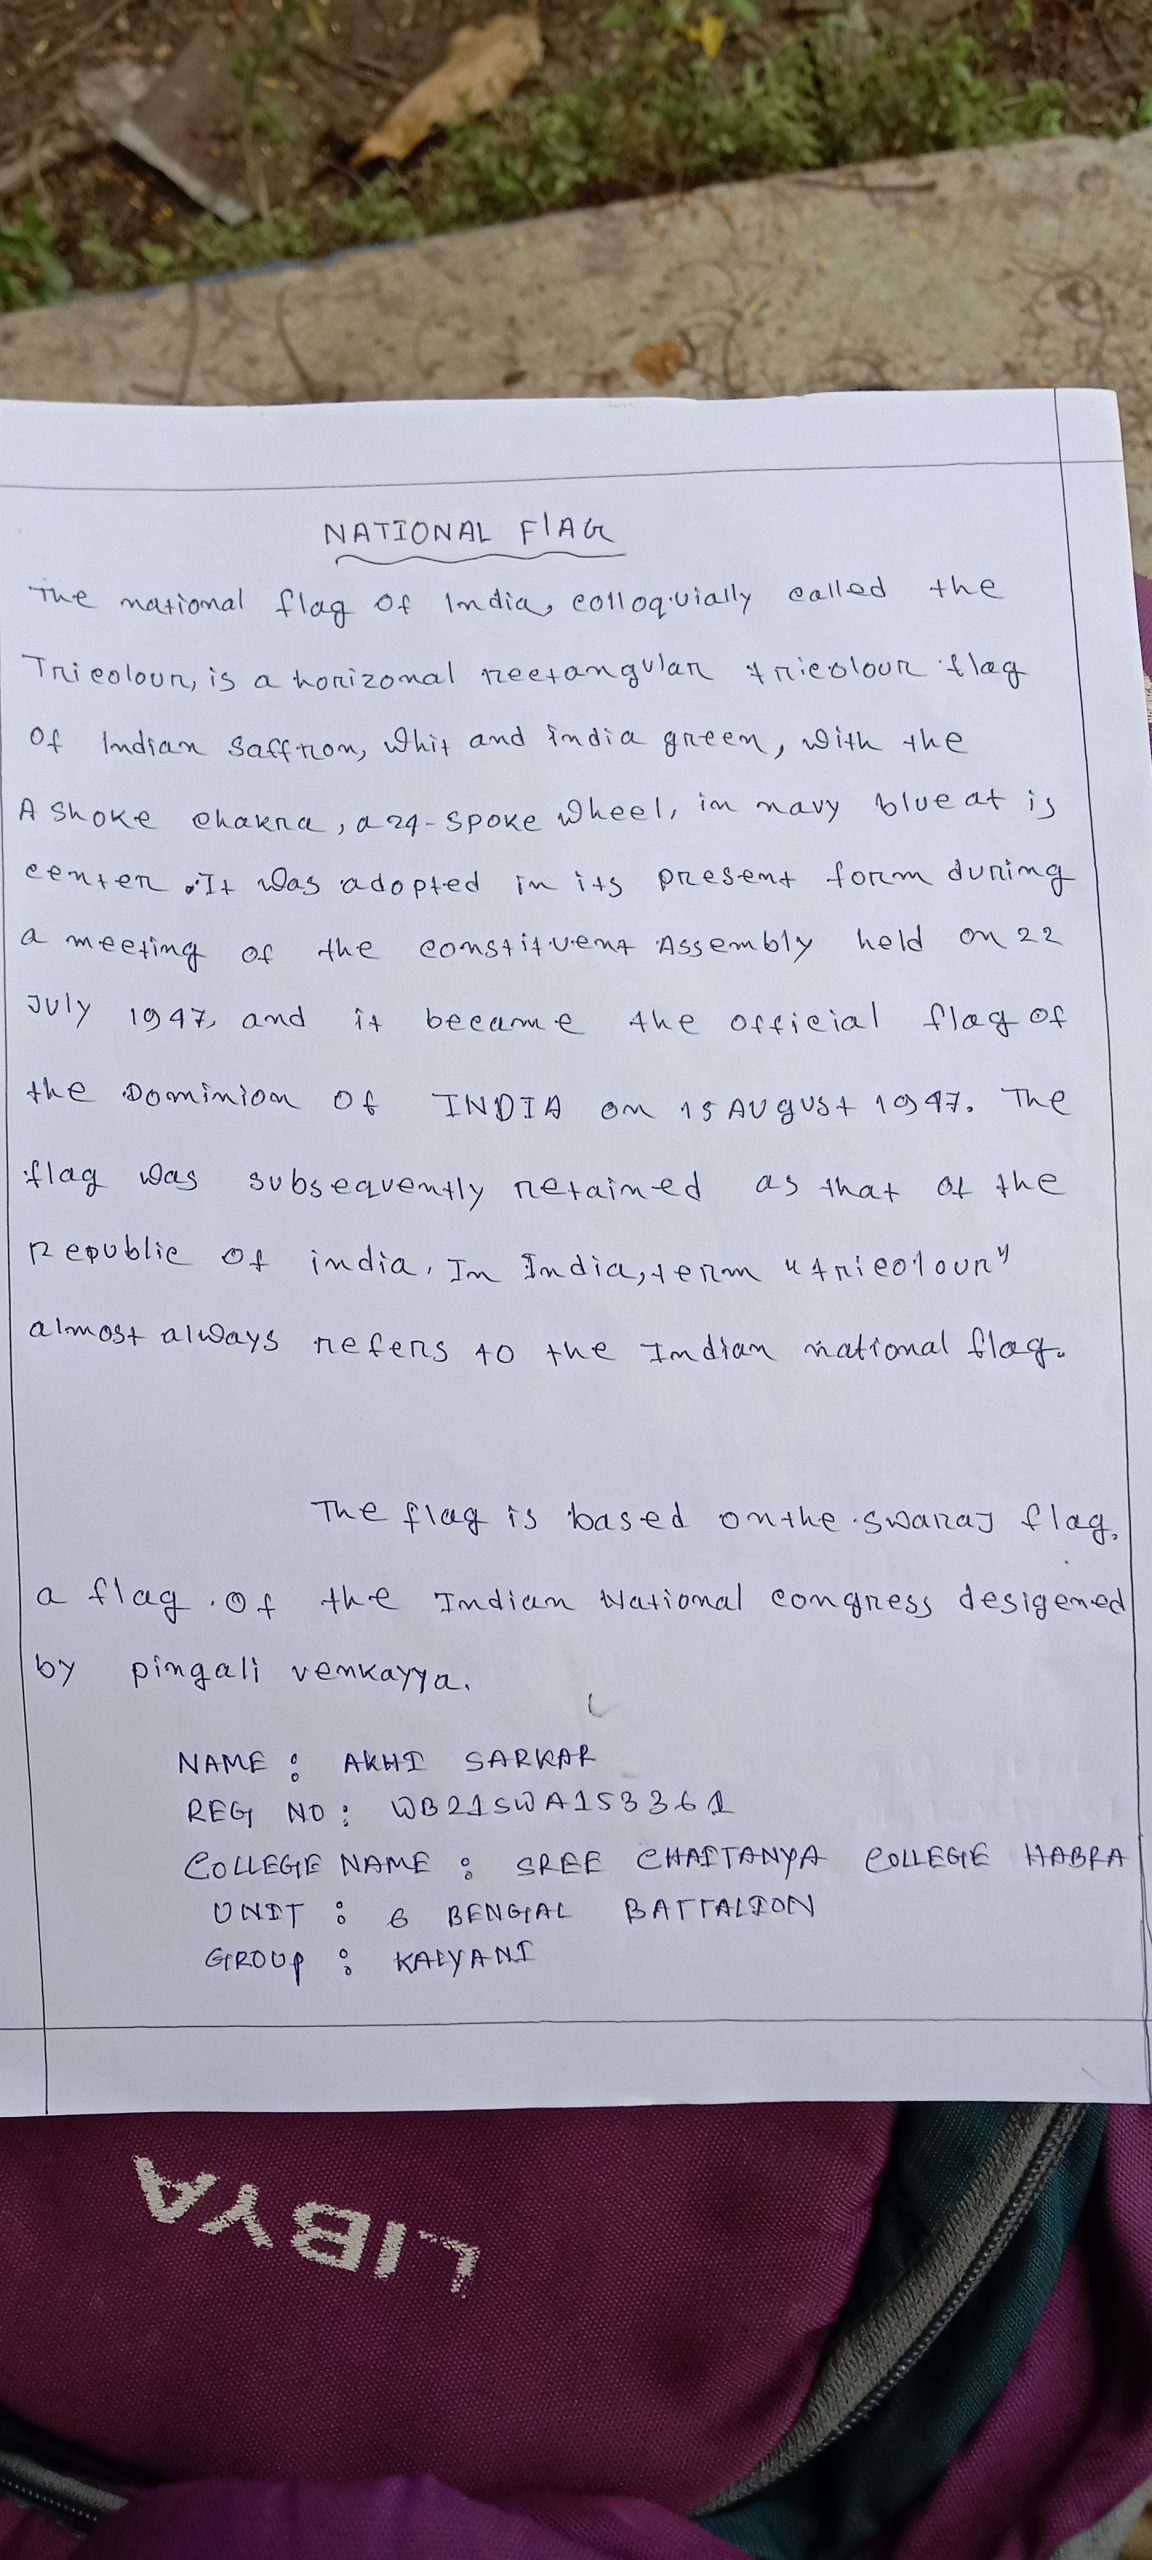 NATIONAL FlAG
The national flag of India, colloquially called the
Tricolour, is a horizonal rectangular tricolour flag
Of Indian saffron, Whit and india green, with the
AShoke chakra, a 24-spoke wheel, in navy blue at is
center. It was adopted in its present form during
a meeting of the constituent Assembly held on 22
July 1947, and it became the official flag of
the Dominion of INDIA on 15 August 1947. The
flag was subsequently retained as that of the
Republic of india. In India, term "tricolour"
almost always refers to the Indian national flag.
The flag is based on the swaraj flag,
a flag of the Indian National congress desigened
by pingali venkayya.
NAME : AKHI SARKAR
REG NO : WB21SWA153361
COLLEGE NAME : SREE CHAITANYA COLLEGE HABRA
UNIT : 6 BENGAL BATTALION
GROUP : KALYANI
LIBYA